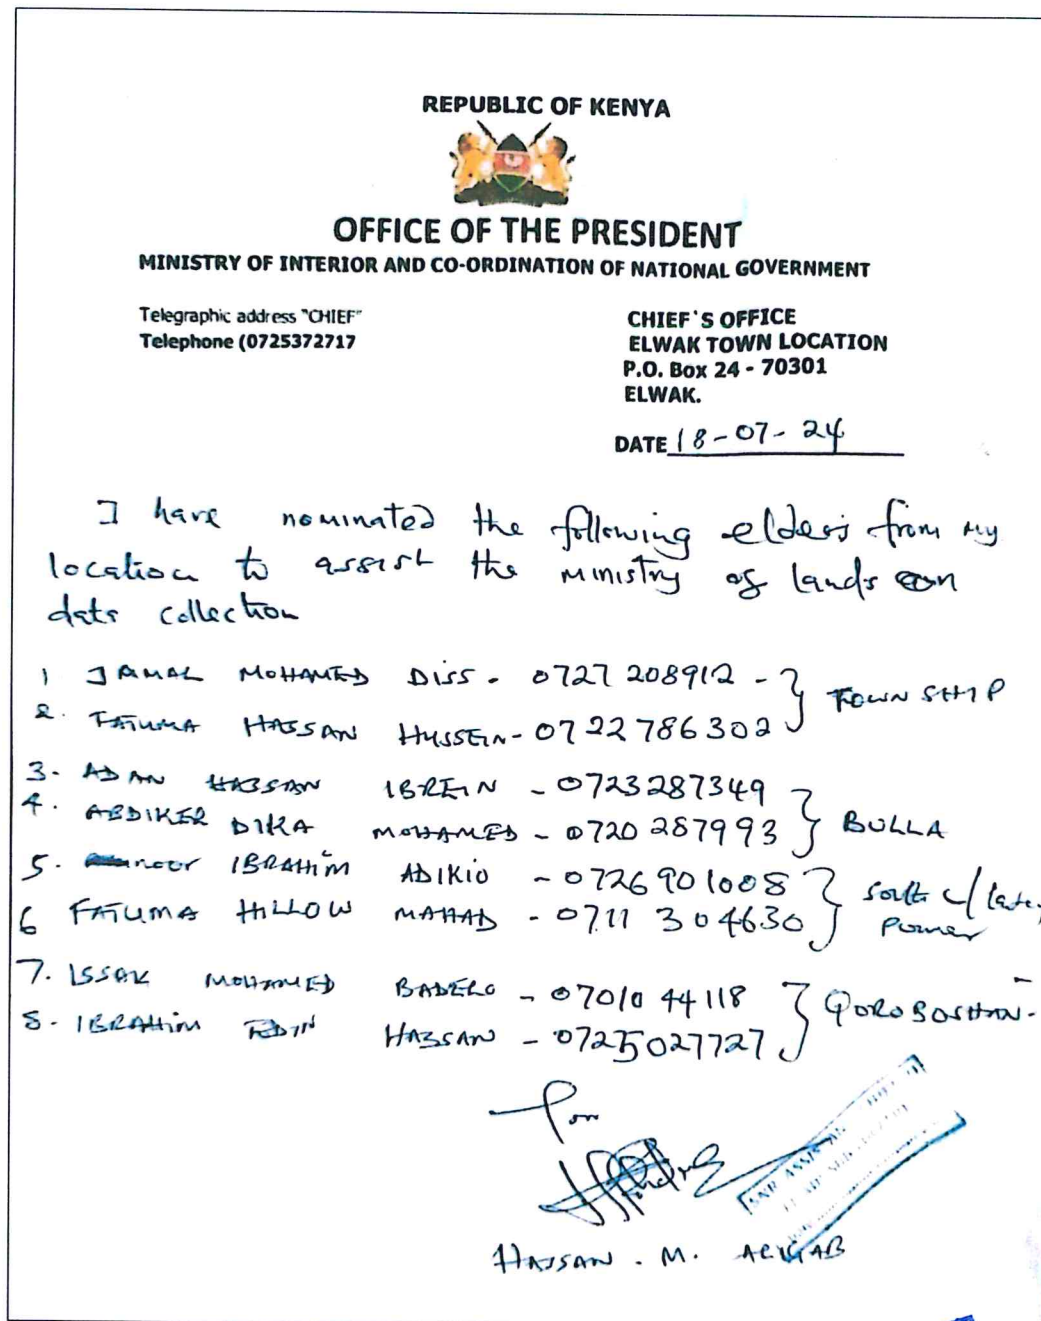 REPUBLIC OF KENYA
OFFICE OF THE PRESIDENT
MINISTRY OF INTERIOR AND CO-ORDINATION OF NATIONAL GOVERNMENT
Telegraphic address "CHIEF"
Telephone (0725372717
CHIEF'S OFFICE
ELWAK TOWN LOCATION
P.O. Box 24 - 70301
ELWAK.
DATE 18-07-24
I have nominated the following elders from my
location to assist the ministry of lands on
data collection
1 JAMAL MOHAMED DISS - 0727 208912 - } TOWNSHIP
2. FATUMA HASSAN HUSSEIN - 0722786302
3. ADAN HASSAN IBREIN - 0723287349
4. ABDIKER DIKA MOHAMED - 0720 287993 } BULLA
5. noor IBRAHIM ADIKIO - 0726901008 } South c/
6 FATUMA HILLOW MAHAD - 0711 304630
7. ISSAK MOHAMED BADELO - 07010 44118 } QOROBOSHAN -
8. IBRAHIM EDIN HASSAN - 0725027727
For
HASSAN . M.